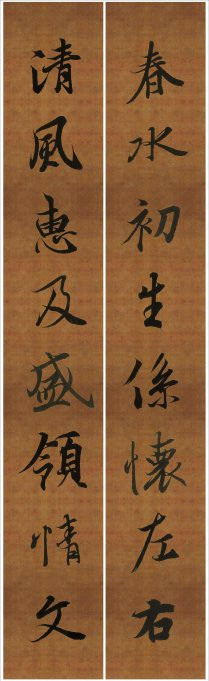 春水初生係懷左右
清風惠及盛領情文